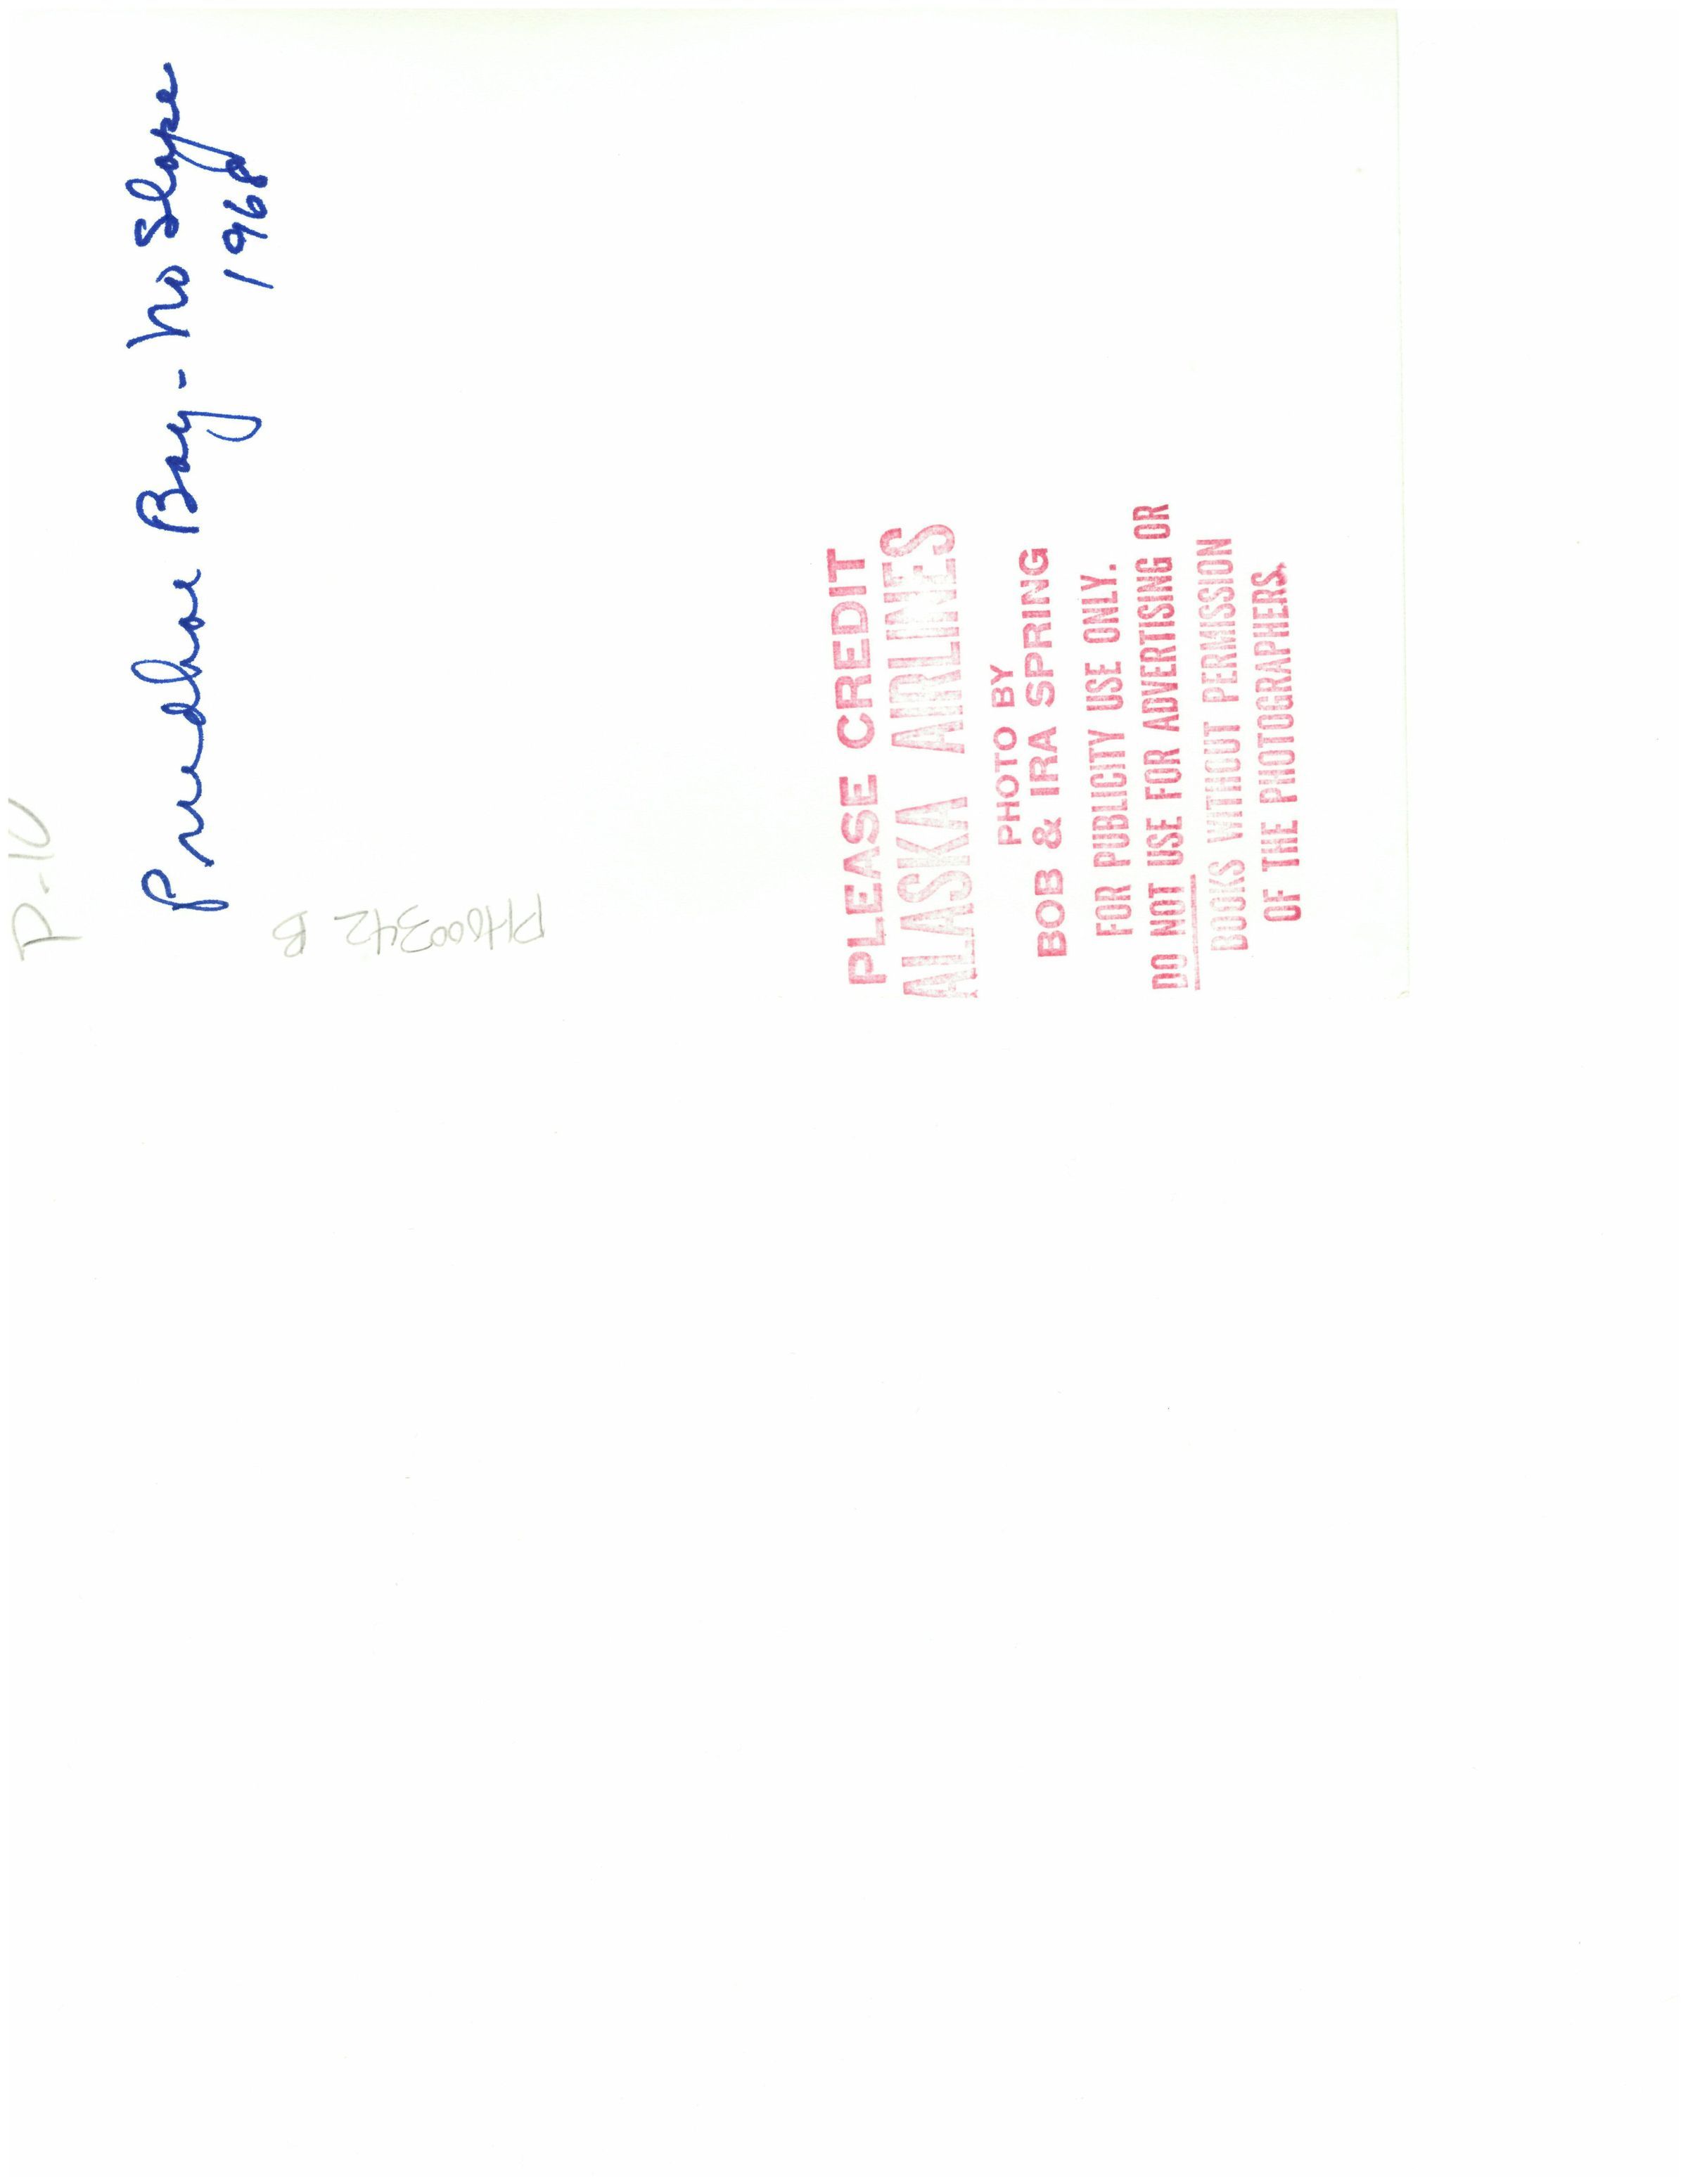 P-10
Prudhoe Bay - No Slope
1968
PH600342 B
PLEASE CREDIT
ALASKA AIRLINES
PHOTO BY
BOB & IRA SPRING
FOR PUBLICITY USE ONLY.
DO NOT USE FOR ADVERTISING OR
BOOKS WITHOUT PERMISSION
OF THE PHOTOGRAPHERS.